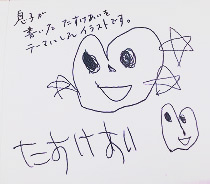 息子が
書いた たすけあいを
テーマにした イラストです。
たすけあい